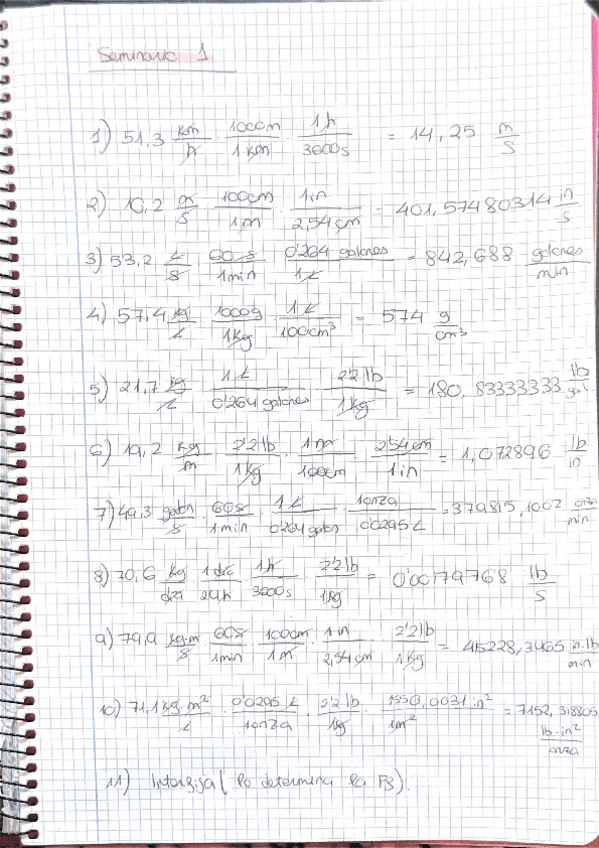 Seminario 1
1) 51,3 km/h · 1000m/1km · 1h/3600s = 14,25 m/s
2) 10,2 m/s · 100cm/1m · 1in/2,54cm = 401,57480314 in/s
3) 53,2 L/s · 60s/1min · 0'264 galones/1L = 842,688 galones/min
4) 57,4 kg/L · 1000g/1kg · 1L/100cm³ = 574 g/cm³
5) 21,7 kg/L · 1L/0'264 galones · 2'2 lb/1kg = 180,83333333 lb/gal
6) 19,2 kg/m · 2'2 lb/1kg · 1m/100cm · 2'54cm/1in = 1,072896 lb/in
7) 49,3 galon/s · 60s/1min · 1L/0'264 galon · 1onza/0'0295L = 379815,1002 onza/min
8) 70,6 kg/día · 1día/24h · 1h/3600s · 2'2 lb/1kg = 0'00179768 lb/s
9) 79,9 kg·m/s · 60s/1min · 100cm/1m · 1in/2,54cm · 2'2 lb/1kg = 415228,3465 in·lb/min
10) 71,1 kg·m²/L · 0'0295L/1onza · 2'2 lb/1kg · 1550,0031 in²/1m² = 7152,318805 lb·in²/onza
11) (lo determina la FB).